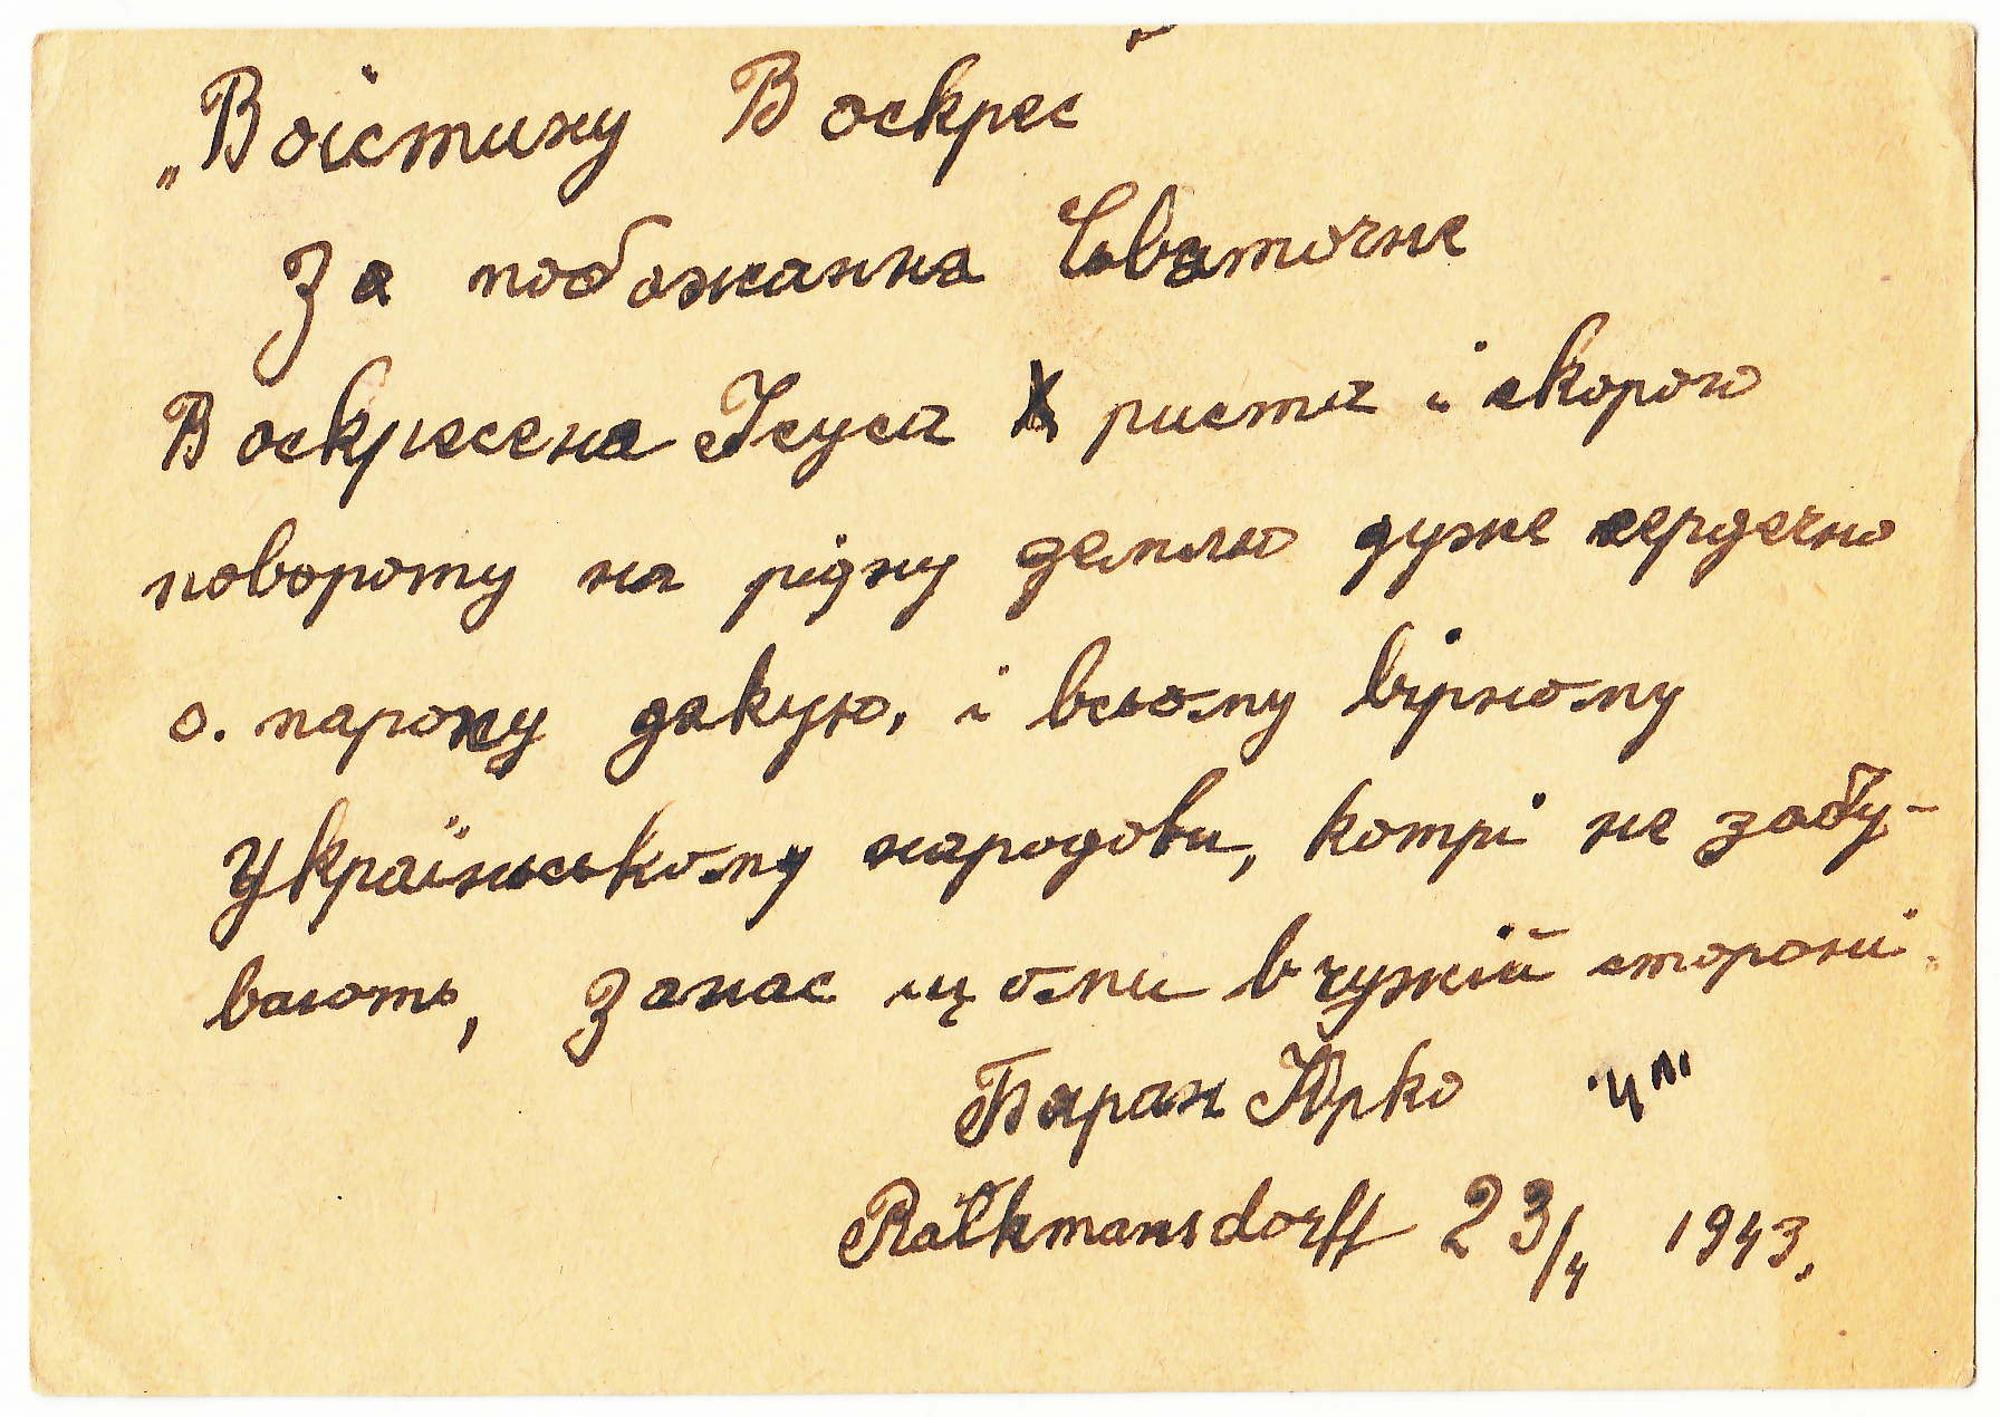 „Воістину Воскрес"
За побажання Сьвяточне
Воскресеня Ісуса Христа і скорого
повороту на рідну землю дуже сердечно
о. пароху дякую, і всьому вірному
Українському народови, котрі не забу-
вають, За нас що ми в чужій стороні.
Баран Юрко
Rathmansdorff 23/4 1943.